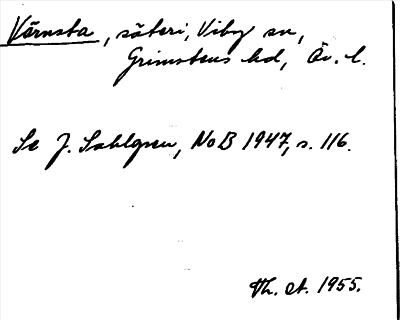 Värnsta, säteri, Viby sn,
Grimstens hd, Ör. l.
Se J. Sahlgren, NoB 1947, s. 116.
Th. et. 1955.